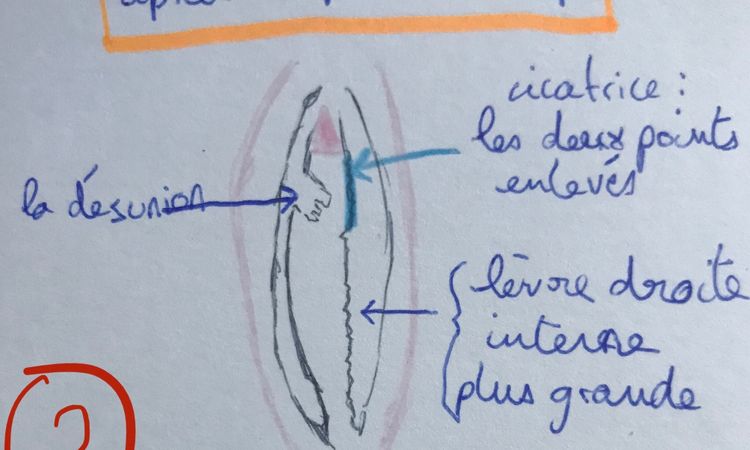 cicatrice :
les deux points
enlevés
la désunion
lèvre droite
interne
plus grande
2